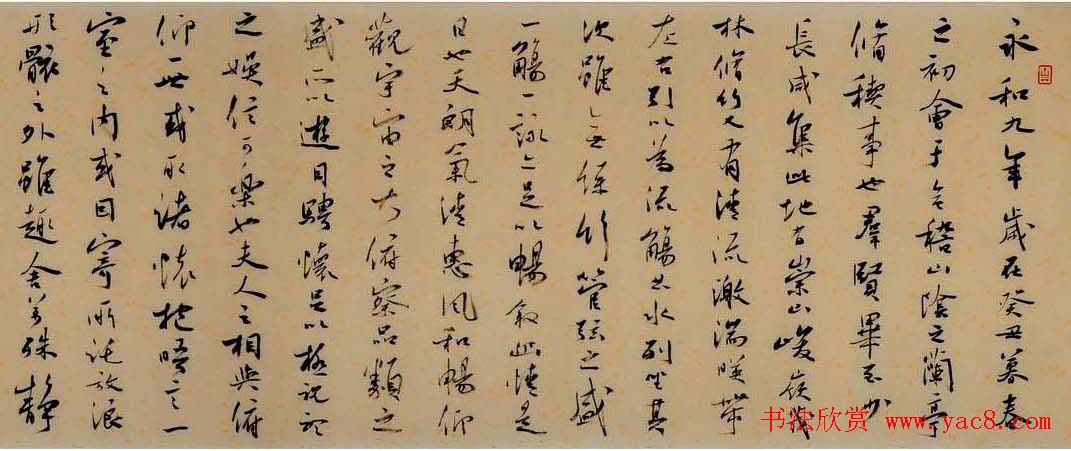 永和九年歲在癸丑暮春
之初會于會稽山陰之蘭亭
脩稧事也羣賢畢至少
長咸集此地有崇山峻嶺茂
林脩竹又有清流激湍暎帶
左右引以為流觴曲水列坐其
次雖無絲竹管弦之盛
一觴一詠亦足以暢敘幽情是
日也天朗氣清惠風和暢仰
觀宇宙之大俯察品類之
盛所以遊目騁懷足以極視聽
之娛信可樂也夫人之相與俯
仰一世或取諸懷抱晤言一
室之內或因寄所託放浪
形骸之外雖趣舍萬殊靜
书法欣赏 www.yac8.com